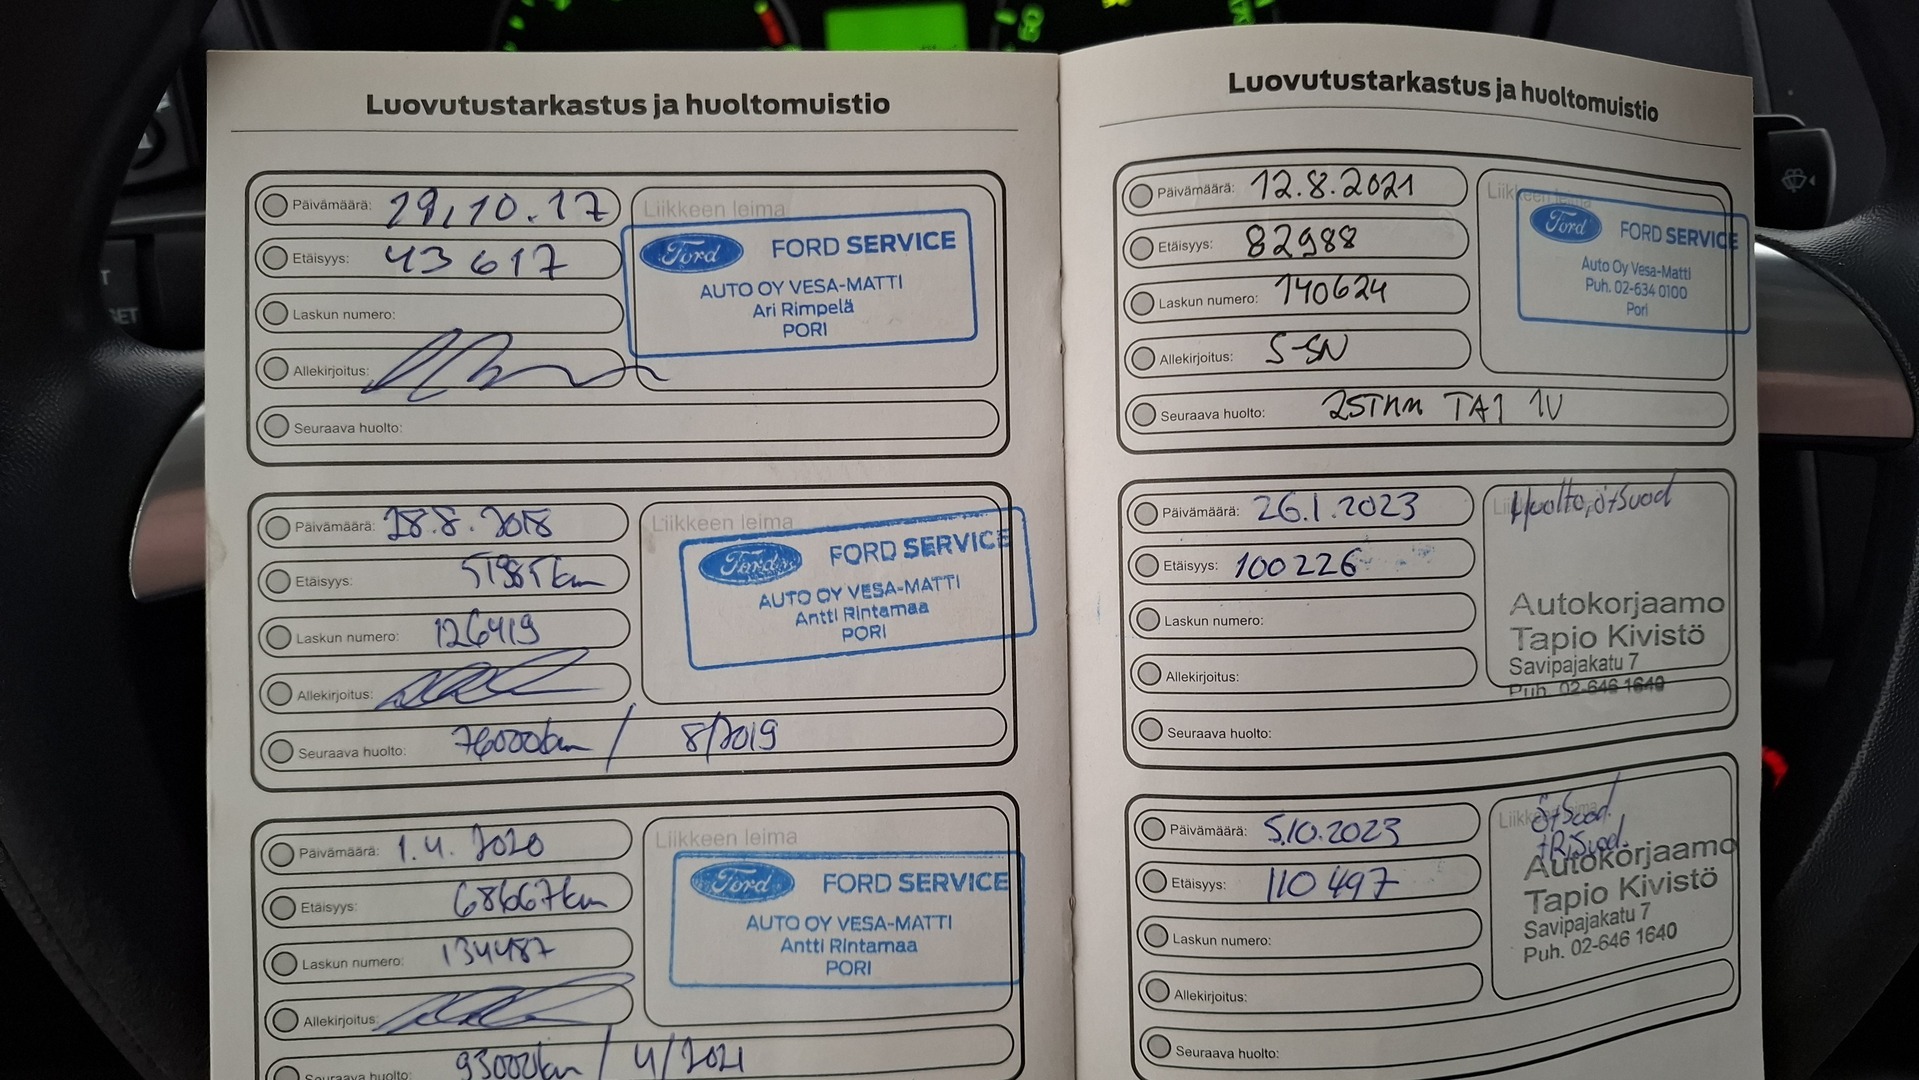 Luovutustarkastus ja huoltomuistio
Päivämäärä: 29,10.17
Etäisyys: 43 617
Laskun numero:
Allekirjoitus:
Seuraava huolto:
Liikkeen leima
Ford FORD SERVICE
AUTO OY VESA-MATTI
Ari Rimpelä
PORI
Päivämäärä: 28.8.2018
Etäisyys: 51985km
Laskun numero: 126419
Allekirjoitus:
Seuraava huolto: 76000km / 8/2019
Liikkeen leima
Ford FORD SERVICE
AUTO OY VESA-MATTI
Antti Rintamaa
PORI
Päivämäärä: 1.4.2020
Etäisyys: 68667km
Laskun numero: 134487
Allekirjoitus:
Seuraava huolto: 93000km / 4/2021
Liikkeen leima
Ford FORD SERVICE
AUTO OY VESA-MATTI
Antti Rintamaa
PORI
Luovutustarkastus ja huoltomuistio
Päivämäärä: 12.8.2021
Etäisyys: 82988
Laskun numero: 140624
Allekirjoitus: S-SN
Seuraava huolto: 25TKM TAI 1V
Liikkeen leima
Ford FORD SERVICE
Auto Oy Vesa-Matti
Puh. 02-634 0100
Pori
Päivämäärä: 26.1.2023
Etäisyys: 100226
Laskun numero:
Allekirjoitus:
Seuraava huolto:
Huolto, ö+suod
Autokorjaamo
Tapio Kivistö
Savipajakatu 7
Puh. 02-646 1640
Päivämäärä: 5.10.2023
Etäisyys: 110 497
Laskun numero:
Allekirjoitus:
Seuraava huolto:
Liikkeen leima
Ö+Suod.
+RiSuod.
Autokorjaamo
Tapio Kivistö
Savipajakatu 7
Puh. 02-646 1640